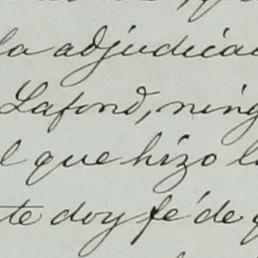 la adjudica
Lafond, ning
l que hizo l
te doy fé de